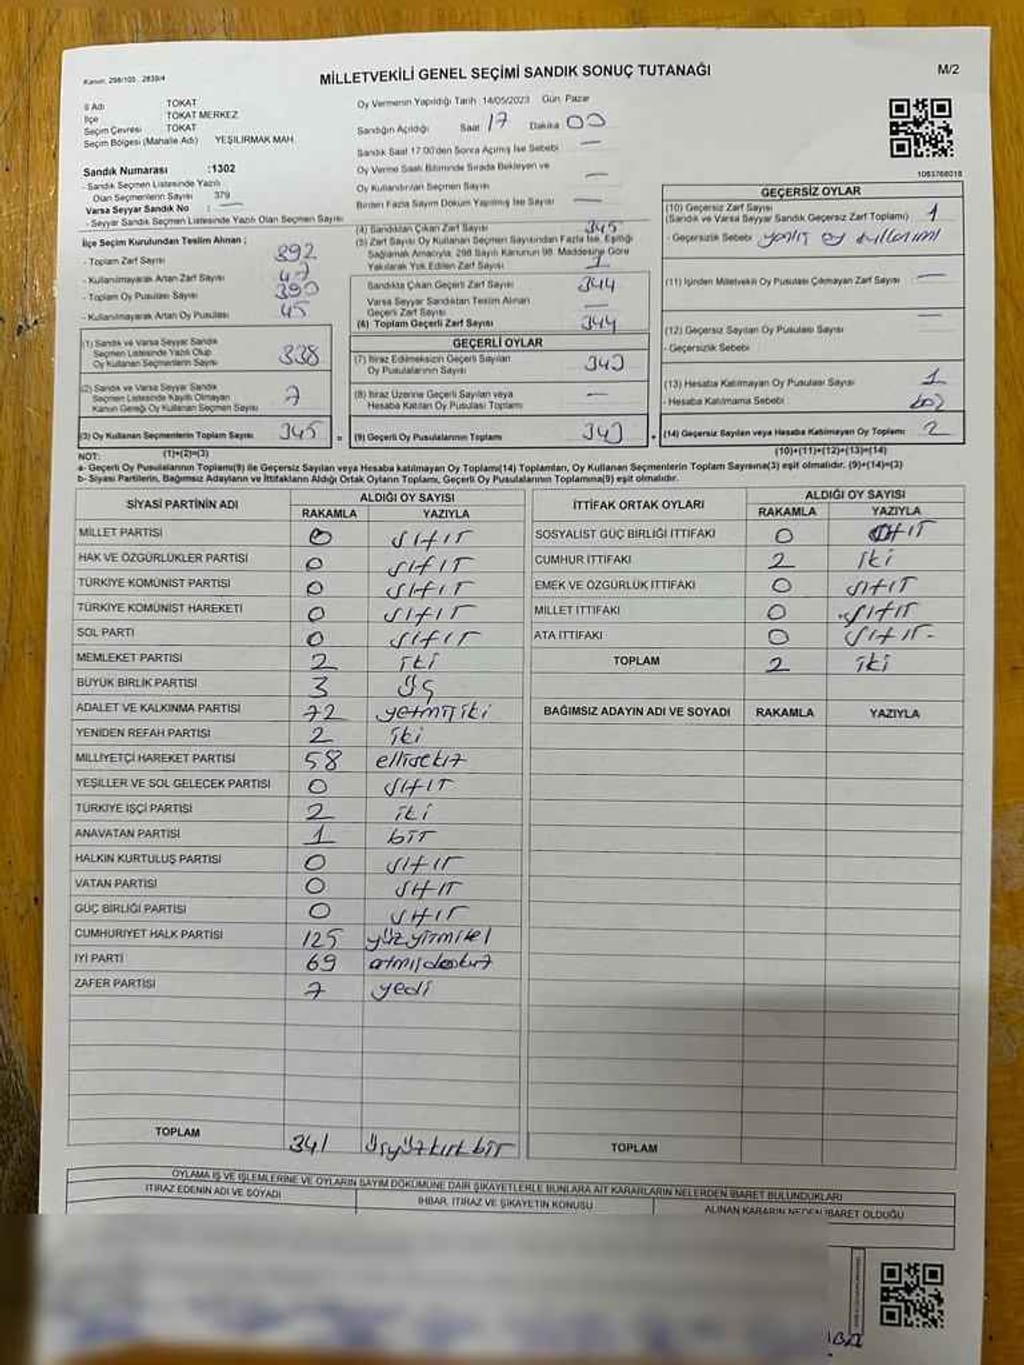 Kanun: 298/105 , 2839/4
MİLLETVEKİLİ GENEL SEÇİMİ SANDIK SONUÇ TUTANAĞI
M/2
İl Adı TOKAT
İlçe TOKAT MERKEZ
Seçim Çevresi TOKAT
Seçim Bölgesi (Mahalle Adı) YEŞİLIRMAK MAH.
Sandık Numarası :1302
- Sandık Seçmen Listesinde Yazılı
Olan Seçmenlerin Sayısı 379
Varsa Seyyar Sandık No : —
- Seyyar Sandık Seçmen Listesinde Yazılı Olan Seçmen Sayısı
İlçe Seçim Kurulundan Teslim Alınan ;
- Toplam Zarf Sayısı 392
- Kullanılmayarak Artan Zarf Sayısı 47
- Toplam Oy Pusulası Sayısı 390
- Kullanılmayarak Artan Oy Pusulası 45
(1) Sandık ve Varsa Seyyar Sandık
Seçmen Listesinde Yazılı Olup
Oy Kullanan Seçmenlerin Sayısı 338
(2) Sandık ve Varsa Seyyar Sandık
Seçmen Listesinde Kayıtlı Olmayan
Kanun Gereği Oy Kullanan Seçmen Sayısı 7
(3) Oy Kullanan Seçmenlerin Toplam Sayısı 345 =
Oy Vermenin Yapıldığı Tarih 14/05/2023 Gün: Pazar
Sandığın Açıldığı Saat 17 Dakika 00
Sandık Saat 17:00'den Sonra Açılmış İse Sebebi —
Oy Verme Saati Bitiminde Sırada Bekleyen ve
Oy Kullandırılan Seçmen Sayısı —
Birden Fazla Sayım Döküm Yapılmış İse Sayısı —
(4) Sandıktan Çıkan Zarf Sayısı 345
(5) Zarf Sayısı Oy Kullanan Seçmen Sayısından Fazla İse, Eşitliği
Sağlamak Amacıyla, 298 Sayılı Kanunun 98. Maddesine Göre
Yakılarak Yok Edilen Zarf Sayısı 1
Sandıkta Çıkan Geçerli Zarf Sayısı 344
Varsa Seyyar Sandıktan Teslim Alınan
Geçerli Zarf Sayısı —
(6) Toplam Geçerli Zarf Sayısı 344
GEÇERLİ OYLAR
(7) İtiraz Edilmeksizin Geçerli Sayılan
Oy Pusulalarının Sayısı 343
(8) İtiraz Üzerine Geçerli Sayılan veya
Hesaba Katılan Oy Pusulası Toplamı —
(9) Geçerli Oy Pusulalarının Toplamı 343 +
1083768018
GEÇERSİZ OYLAR
(10) Geçersiz Zarf Sayısı
(Sandık ve Varsa Seyyar Sandık Geçersiz Zarf Toplamı) 1
- Geçersizlik Sebebi yanlış oy kullanımı
(11) İçinden Milletvekili Oy Pusulası Çıkmayan Zarf Sayısı —
(12) Geçersiz Sayılan Oy Pusulası Sayısı —
- Geçersizlik Sebebi
(13) Hesaba Katılmayan Oy Pusulası Sayısı 1
- Hesaba Katılmama Sebebi boş
(14) Geçersiz Sayılan veya Hesaba Katılmayan Oy Toplamı 2
NOT: (1)+(2)=(3) (10)+(11)+(12)+(13)=(14)
a- Geçerli Oy Pusulalarının Toplamı(9) ile Geçersiz Sayılan veya Hesaba katılmayan Oy Toplamı(14) Toplamları, Oy Kullanan Seçmenlerin Toplam Sayısına(3) eşit olmalıdır. (9)+(14)=(3)
b- Siyasi Partilerin, Bağımsız Adayların ve İttifakların Aldığı Ortak Oyların Toplamı, Geçerli Oy Pusulalarının Toplamına(9) eşit olmalıdır.
SİYASİ PARTİNİN ADI ALDIĞI OY SAYISI
RAKAMLA YAZIYLA
MİLLET PARTİSİ 0 sıfır
HAK VE ÖZGÜRLÜKLER PARTİSİ 0 sıfır
TÜRKİYE KOMÜNİST PARTİSİ 0 sıfır
TÜRKİYE KOMÜNİST HAREKETİ 0 sıfır
SOL PARTİ 0 sıfır
MEMLEKET PARTİSİ 2 iki
BÜYÜK BİRLİK PARTİSİ 3 üç
ADALET VE KALKINMA PARTİSİ 72 yetmişiki
YENİDEN REFAH PARTİSİ 2 iki
MİLLİYETÇİ HAREKET PARTİSİ 58 ellisekiz
YEŞİLLER VE SOL GELECEK PARTİSİ 0 sıfır
TÜRKİYE İŞÇİ PARTİSİ 2 iki
ANAVATAN PARTİSİ 1 bir
HALKIN KURTULUŞ PARTİSİ 0 sıfır
VATAN PARTİSİ 0 sıfır
GÜÇ BİRLİĞİ PARTİSİ 0 sıfır
CUMHURİYET HALK PARTİSİ 125 yüzyirmibeş
İYİ PARTİ 69 atmışdokuz
ZAFER PARTİSİ 7 yedi
TOPLAM 341 üçyüzkırkbir
İTTİFAK ORTAK OYLARI ALDIĞI OY SAYISI
RAKAMLA YAZIYLA
SOSYALİST GÜÇ BİRLİĞİ İTTİFAKI 0 sıfır
CUMHUR İTTİFAKI 2 iki
EMEK VE ÖZGÜRLÜK İTTİFAKI 0 sıfır
MİLLET İTTİFAKI 0 sıfır
ATA İTTİFAKI 0 sıfır
TOPLAM 2 iki
BAĞIMSIZ ADAYIN ADI VE SOYADI RAKAMLA YAZIYLA
TOPLAM
OYLAMA İŞ VE İŞLEMLERİNE VE OYLARIN SAYIM DÖKÜMÜNE DAİR ŞİKAYETLERLE BUNLARA AİT KARARLARIN NELERDEN İBARET BULUNDUKLARI
İTİRAZ EDENİN ADI VE SOYADI İHBAR, İTİRAZ VE ŞİKAYETİN KONUSU ALINAN KARARIN NEDEN İBARET OLDUĞU